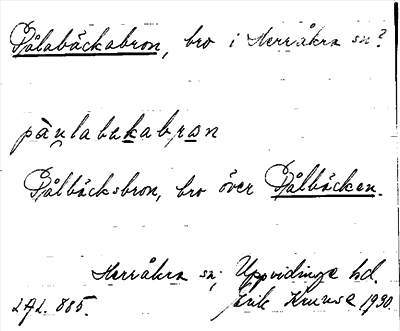 Pålabäckabron, bro i Herråkra sn?
pàu̯labækabrɷn
Pålbäcksbron, bro över Pålbäcken.
Herråkra sn, Uppvidinge hd.
LAL. 885. Erik Kruuse 1930.